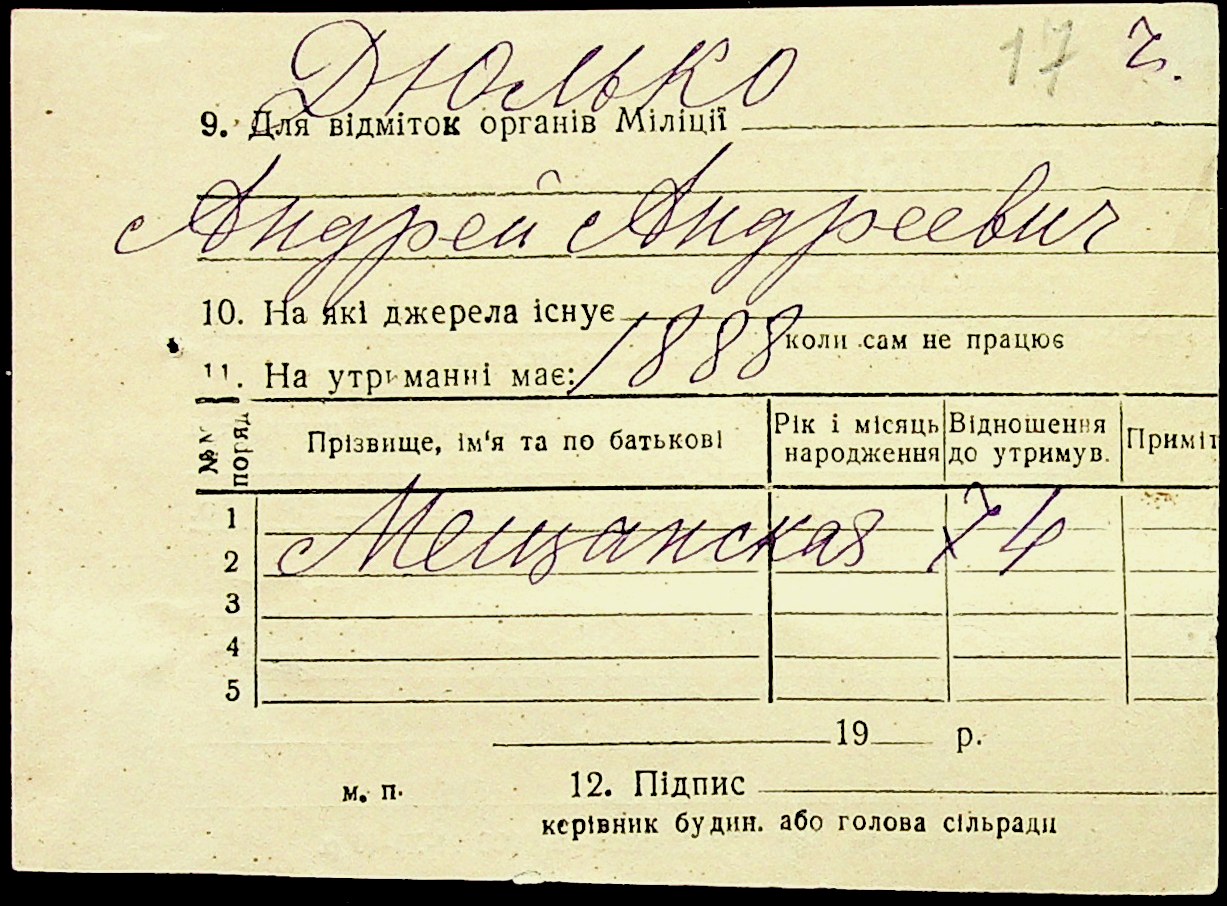 Дюлько 17 ч.
9. Для відміток органів Міліції
Андрей Андреевич
10. На які джерела існує
1888 коли сам не працює
11. На утриманні має:
№№ поряд Прізвище, ім'я та по батькові Рік і місяць народження Відношення до утримув. Приміт
1
Мещанская 74
2
3
4
5
19 р.
м. п. 12. Підпис
керівник будин. або голова сільради